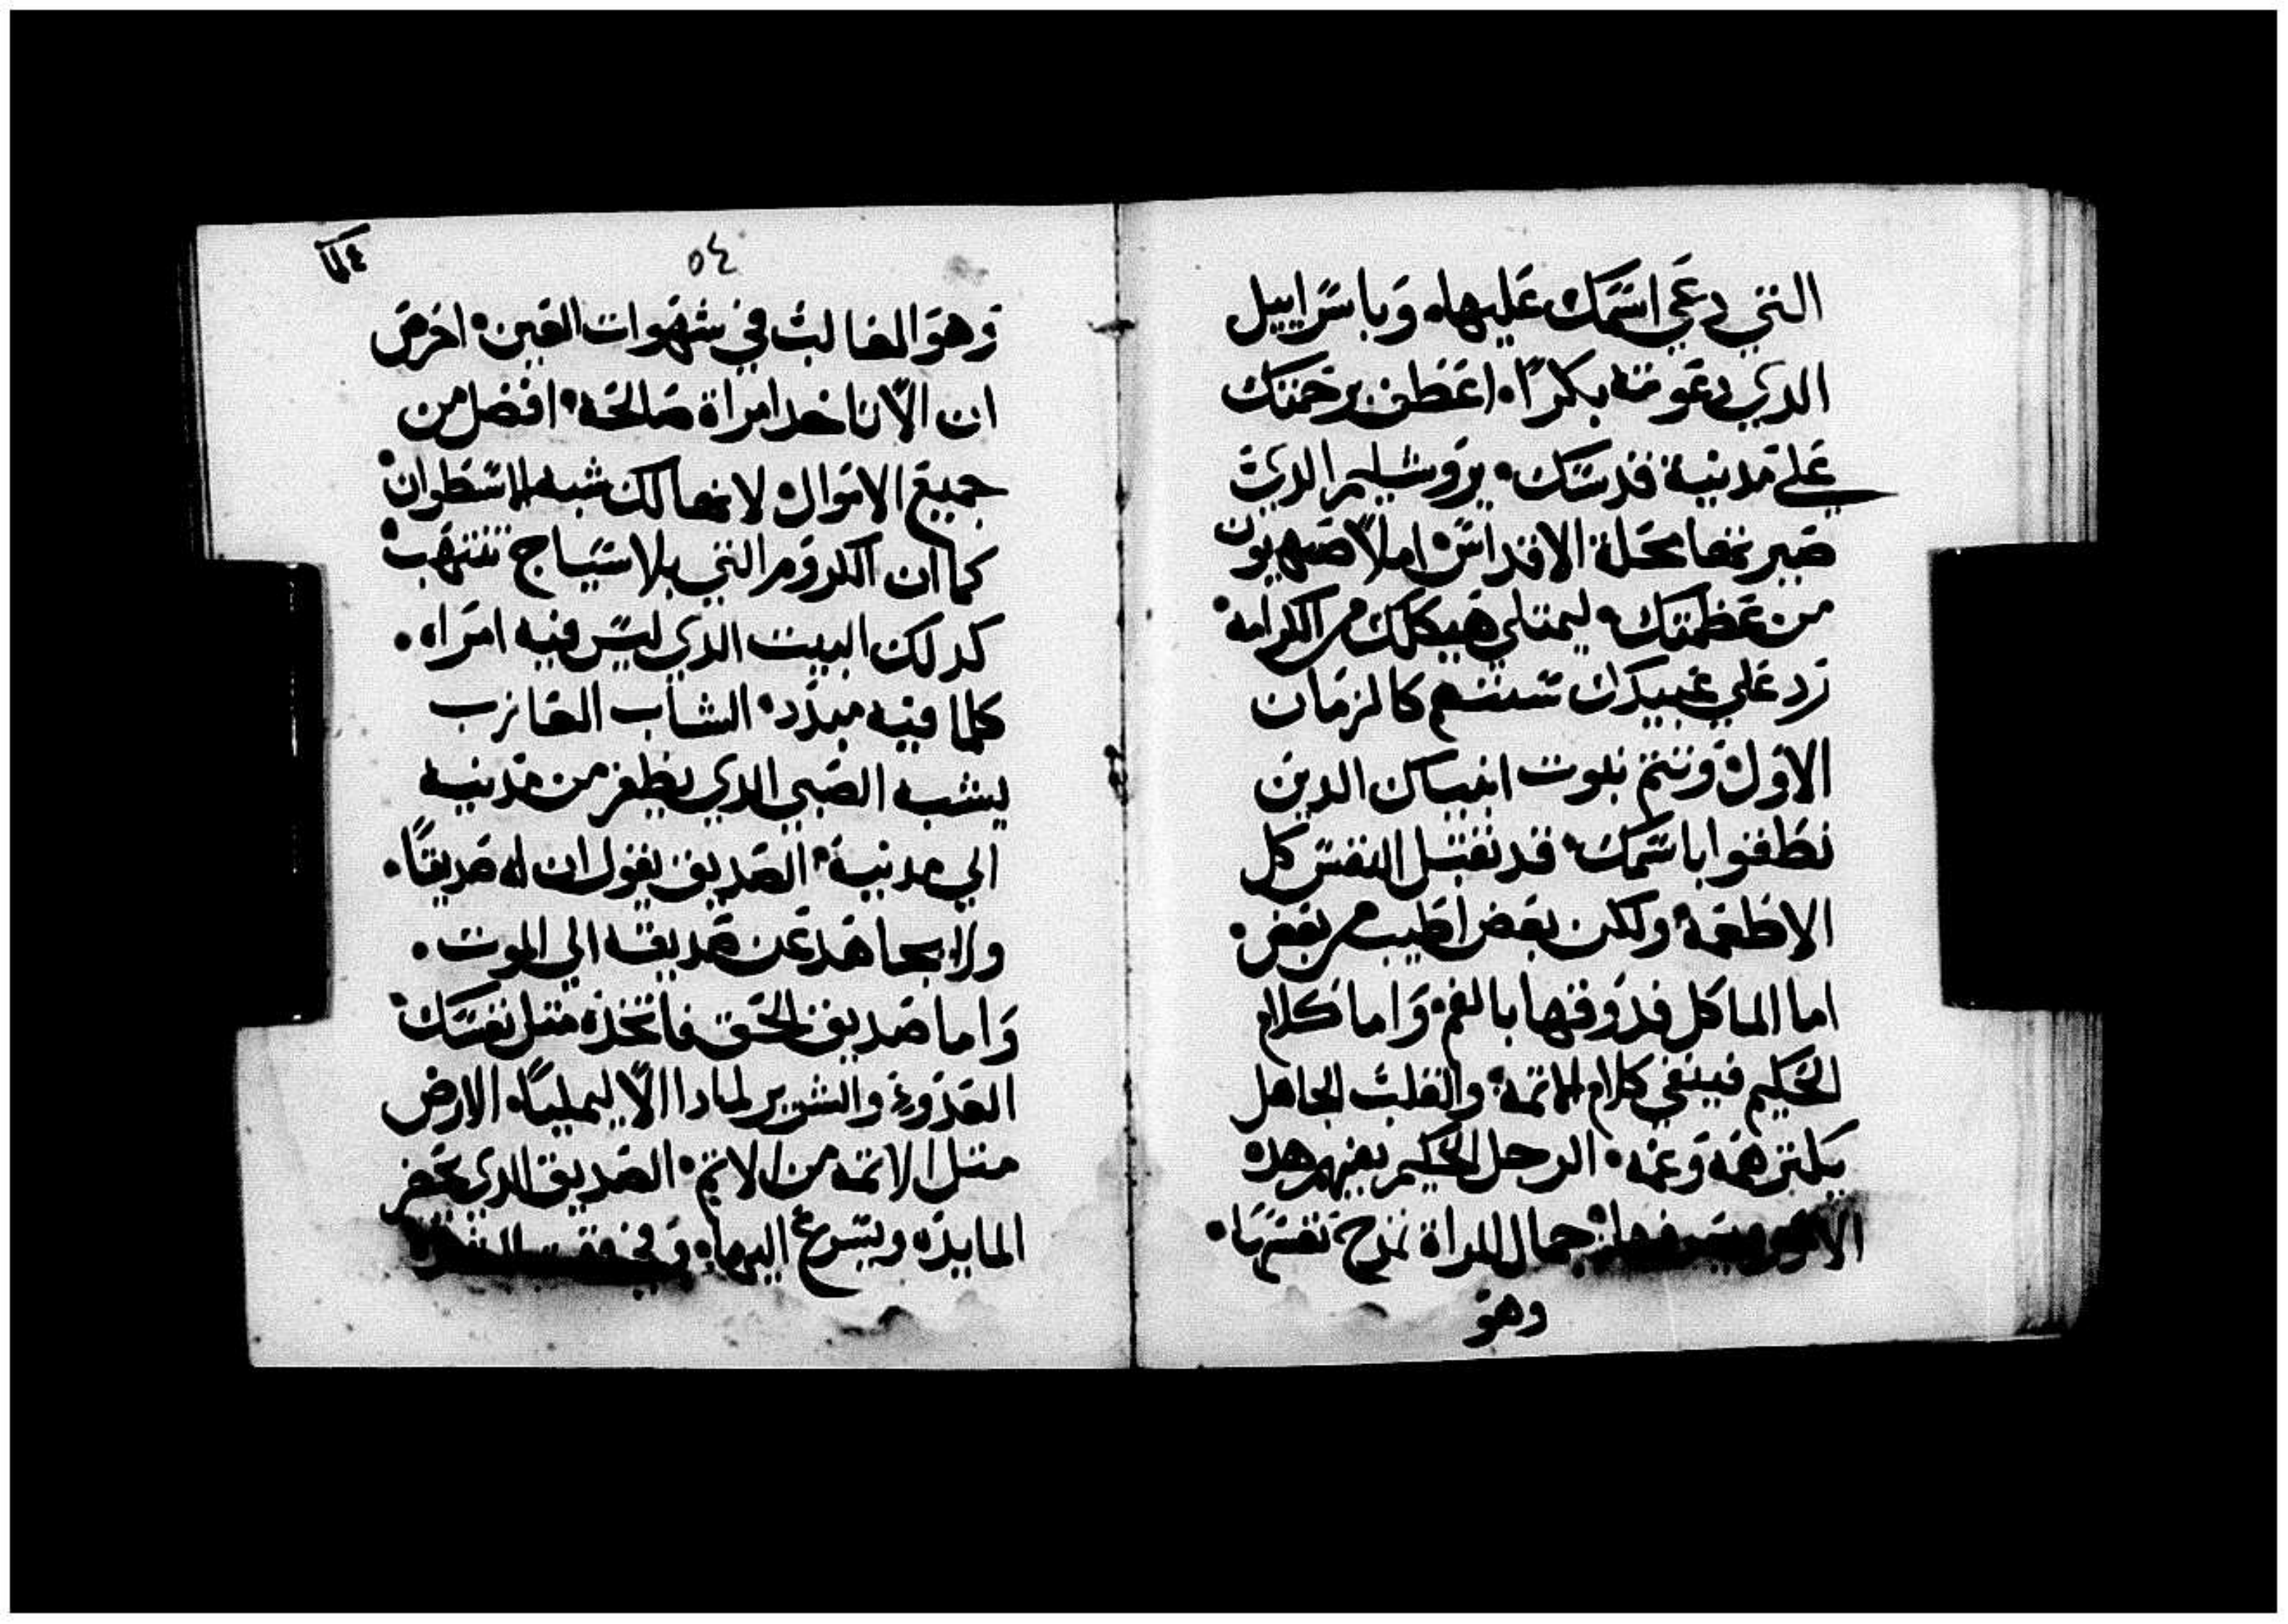 التي دعي اسمك عليها. وباسراييل
الدي دعوته بكرًا. اعطف برحمتك
علي مدينة قدسك. يروشليم الدي
صيرتها محلة الاقداس. املا صهيون
من عظمتك. ليمتلي هيكلك من الكرامة.
رد علي عبيدك كالزمان
الاول. وتتم نبوت انبياك الدين
نطقوا باسمك. قد تقبل النفس كل
الاطعمة ولكن بعض اطيب من بعض.
اما الماكل فدوقها بالفم. واما كلام
الحكيم كلام والقلب الجاهل
همه وغمه. الرجل الحكيم يفهم هده
جمال المراة نفسها.
وهو
٥٤
وهو الغالب في شهوات العين. احرص
ان الا تاخد امراة صالحة. افضل من
جميع الاموال. لانها لك شبه الاسطوان.
كما ان الكروم التي بلا سياج تنتهب.
كدلك البيت الدي ليس فيه امراه.
كلما فيه مبدد. الشاب العازب
يشبه الصبي الدي يطفر من مدينه
الي مدينة. الصديق يقول ان له صديقًا.
ولا يجاهد عن صديقه الي الموت.
واما صديق الحق فاتخده متل نفسك.
العدو والشرير لمادا الا ليمليا. الارض
متل الاتمه من الاتم. الصديق الدي يحضر
المايده ويسرع اليها. وفي وقت